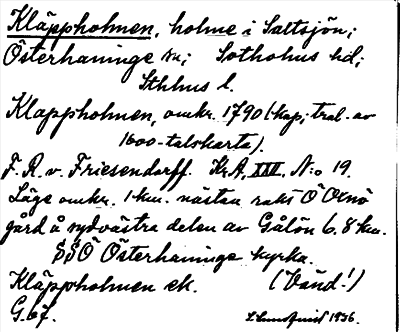 Kläppholmen, holme i Saltsjön;
Österhaninge sn; Sotholms hd;
Sthlms l.
Klappholmen, omkr. 1790 (kop; tral. av
1600-talskarta).
F. R. v. Friesendorff. Kr.A, XIII, N:o 19.
Läge omkr. 1 km. nästan rakt Ö Ornö
gård å sydvästra delen av Gålön 6.8 km.
SSÖ Österhaninge kyrka.
Kläppholmen ek. (Vänd!)
G. 67. 1936.